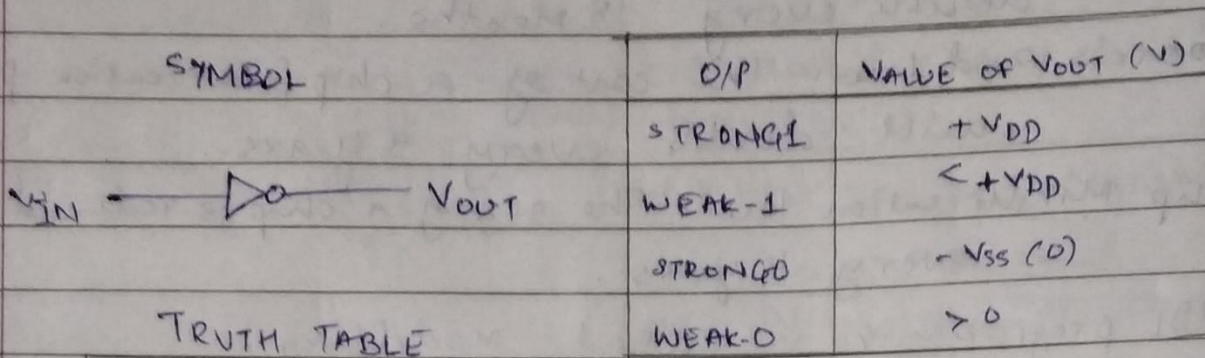 SYMBOL O/P VALUE OF VOUT (V)
STRONG1 + VDD
VIN VOUT WEAK-1 < + VDD
STRONG0 - VSS (0)
TRUTH TABLE WEAK-0 > 0